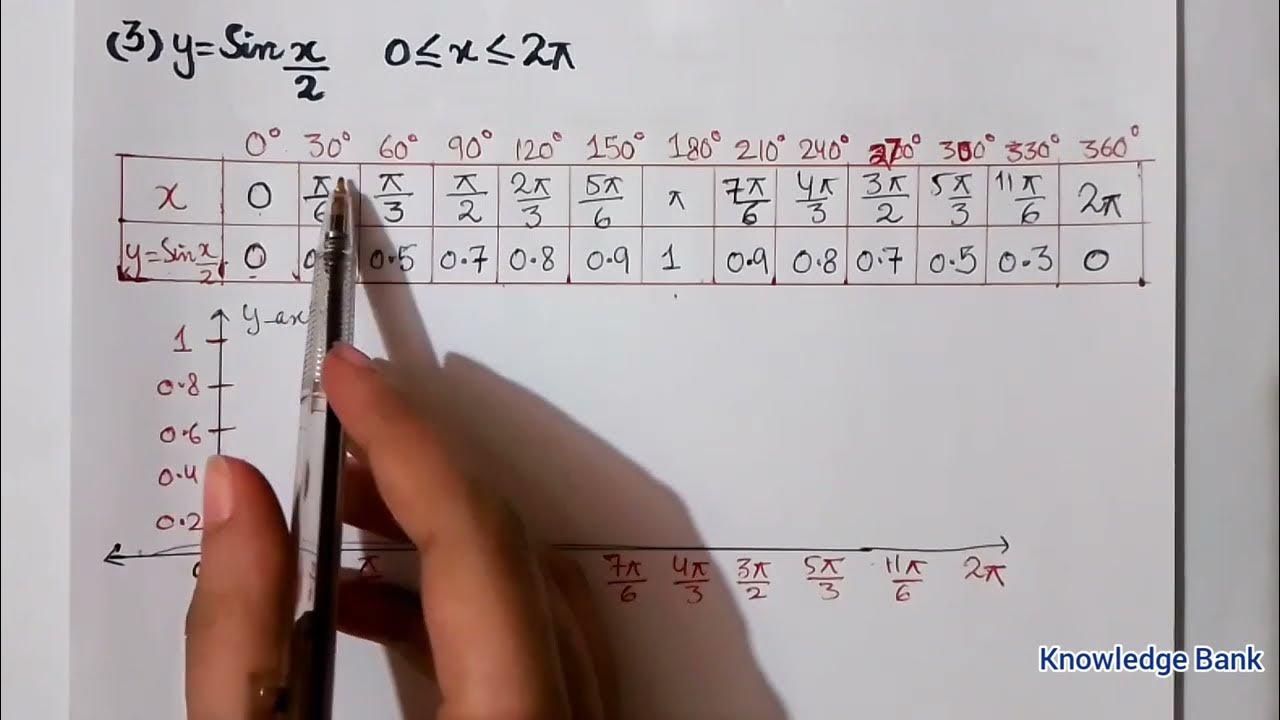 (3) y = Sin x/2 0 ≤ x ≤ 2π
0° 30° 60° 90° 120° 150° 180° 210° 240° 270° 300° 330° 360°
x 0 π/6 π/3 π/2 2π/3 5π/6 π 7π/6 4π/3 3π/2 5π/3 11π/6 2π
y = Sin x/2 0 0.5 0.7 0.8 0.9 1 0.9 0.8 0.7 0.5 0.3 0
1
0.8
0.6
0.4
0.2
7π/6 4π/3 3π/2 5π/3 11π/6 2π
Knowledge Bank